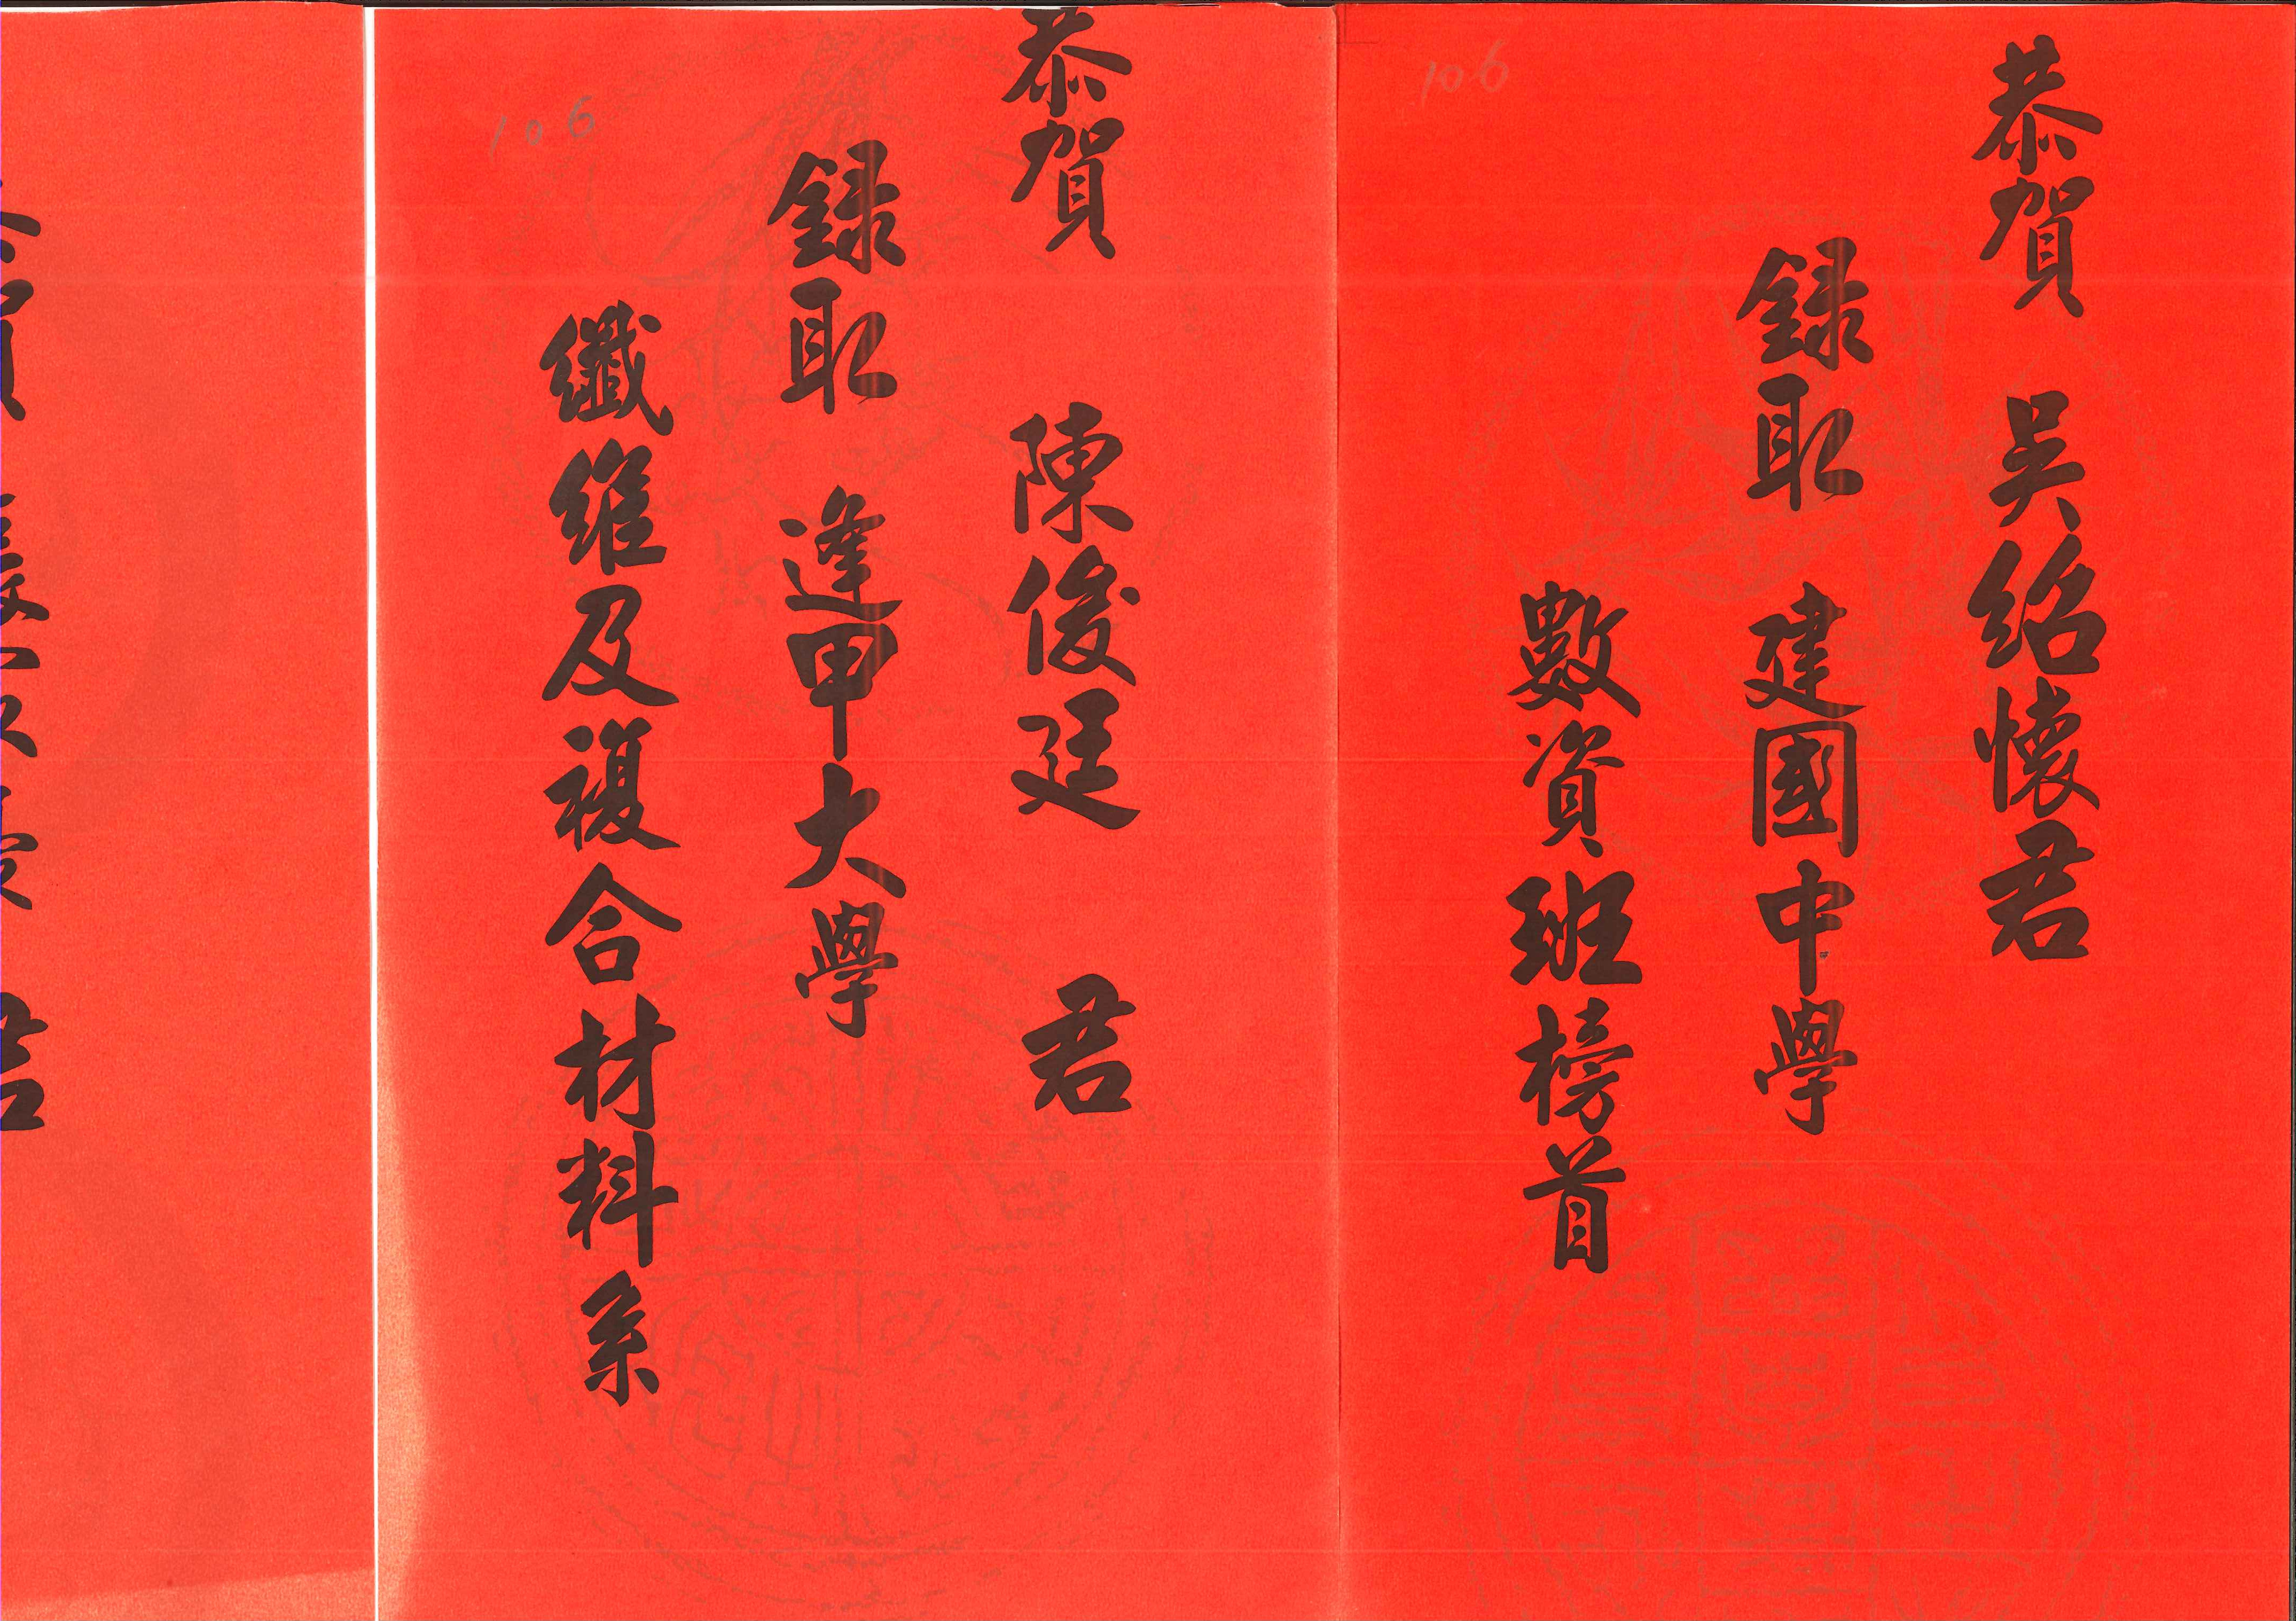 106
恭賀 吳紹懷君
錄取 建國中學
數資班榜首
106
恭賀 陳俊廷 君
錄取 逢甲大學
纖維及複合材料系
君